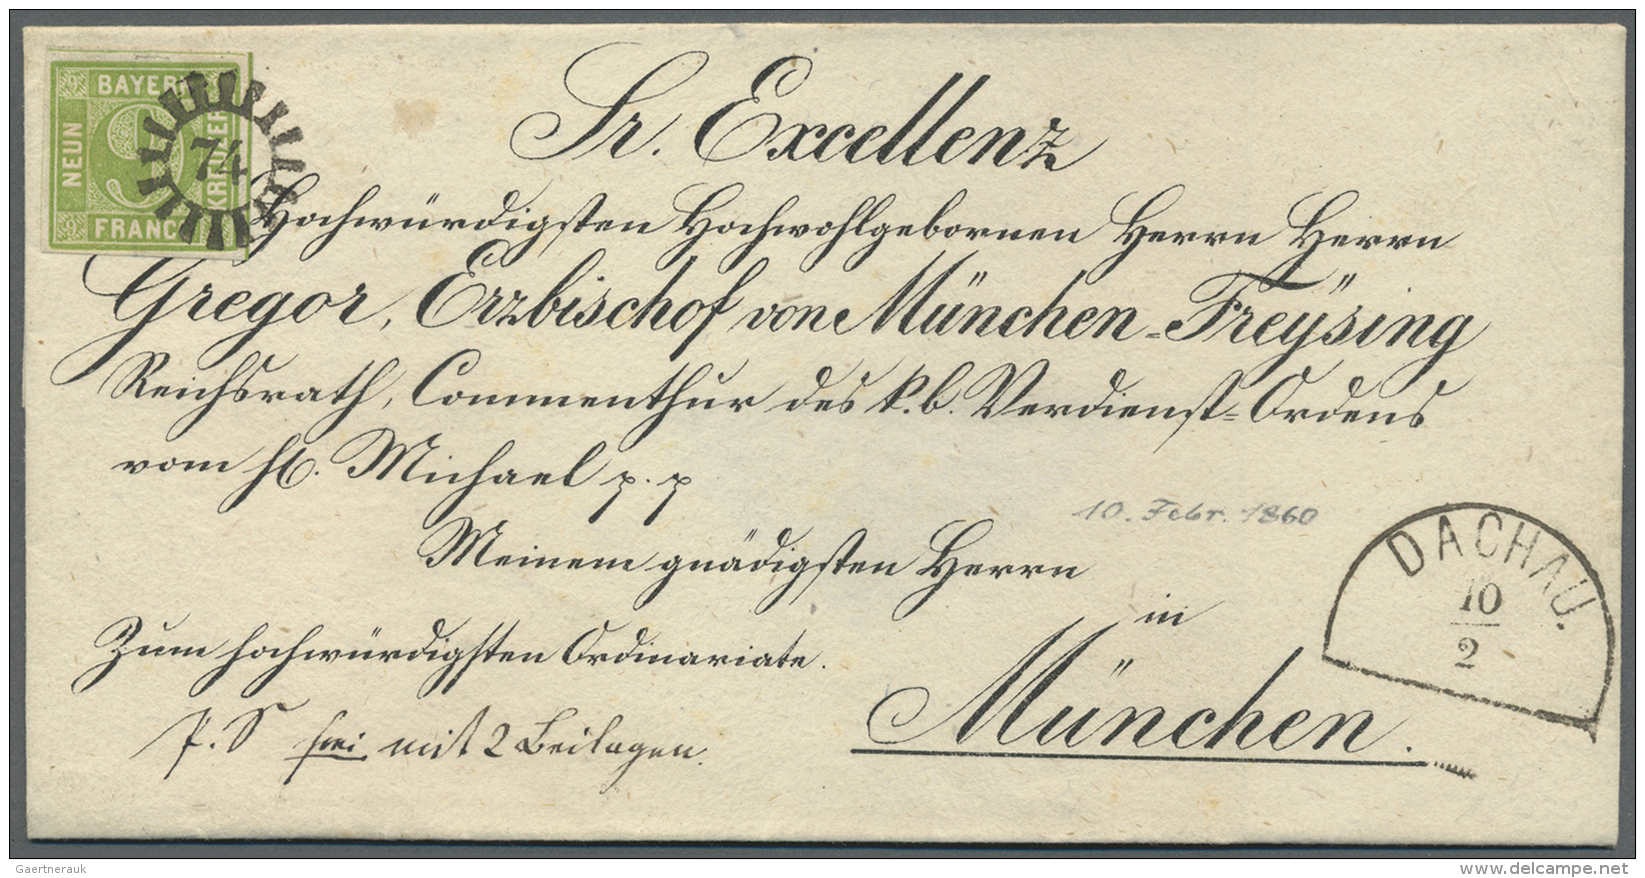 BAYERN
NEUN
9
KREUZER
FRANCO
74
Sr. Excellenz
Hochwürdigsten Hochwohlgebornen Herrn Herrn
Gregor, Erzbischof von München-Freÿsing
Reichsrath, Commenthur des k. b. Verdienst-Ordens
vom hl. Michael p. p
10. Febr. 1860
Meinem gnädigsten Herrn
in
München.
Zum hochwürdigsten Ordinariate.
P. S frei mit 2 Beilagen.
DACHAU.
10
2
Gaertnerauk
www.delcampe.net